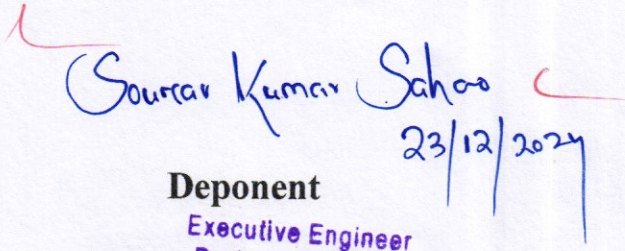 Sourav Kumar Sahoo
23/12/2024
Deponent
Executive Engineer